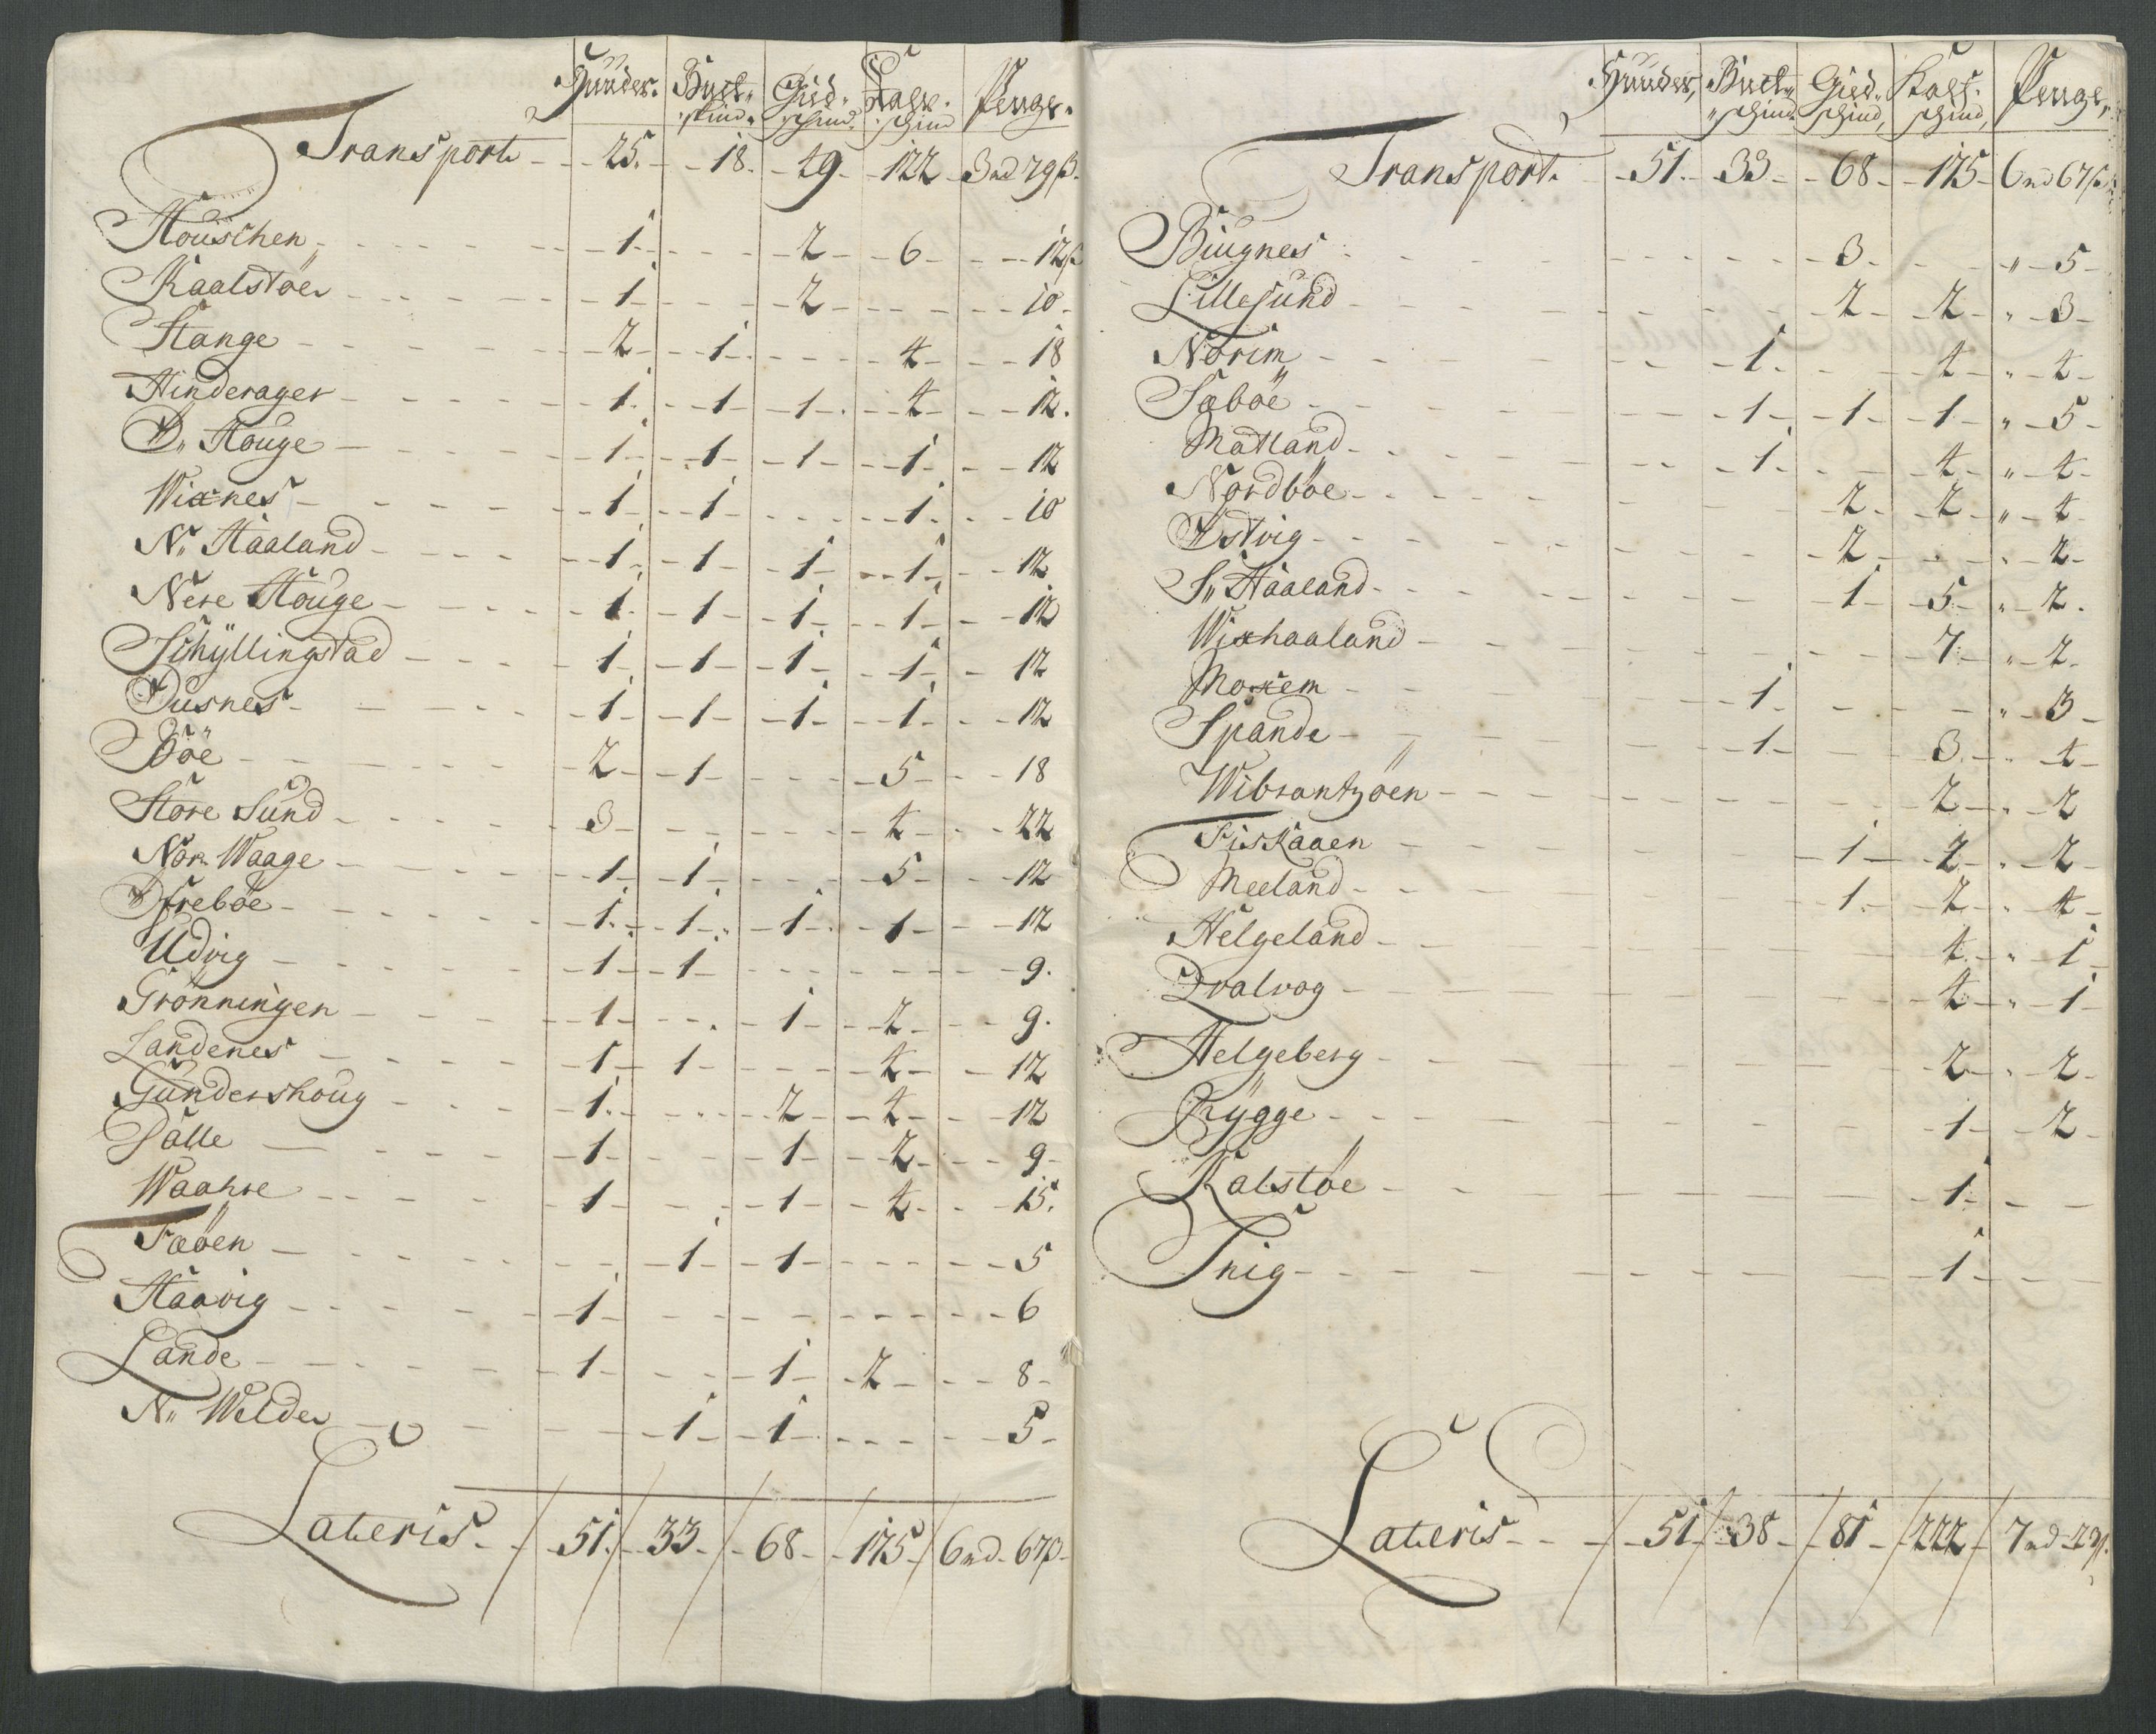 Huuder. Buck- Gied- Kalf- Penge.
skind. schind. schind
Transport 25. 18. 49 122 3 rd 79 β.
Houschen 1 2 6 12 β
Kaalstöe 1 2 10
Stange 2 1 4 18
Hinderager 1 1 1 4 12.
D. Houge 1 1 1 1 12
Wixnes 1 1 1 10
N. Haaland 1 1 1 1 12
Nere Houge 1 1 1 1 12
Schÿllingstad 1 1 1 1 12
Dusnes 1 1 1 1 12
Böe 2 1 5 18
Store Sund 3 4 22
Nor Waage 1 1 5 12
Yfreböe 1 1 1 1 12
Udvig 1 1 9.
Grönningen 1 1 2 9.
Landenes 1 1 4 12
Gundershoug 1 2 4 12
Salle 1 1 2 9
Waahre 1 1 4 15.
Fæöen 1 1 5
Haavig 1 6
Lande 1 1 2 8
N. Welde 1 1 5
Lateris 51. 33 68 175 6 rd 67 β
Huuder, Buck- Gied- Kalf- Penge,
schind schind, schind,
Transport 51. 33 68 175 6 rd 67 β
Biugnes 3 " 5
Lillesund 2 2 " 3
Norim 1 4 " 4
Sæböe 1 1 1 " 5
Matland 1 4 " 4
Nordböe 2 2 " 4
Ystvig 2 " 2
S. Haaland 1 5 " 2.
Wixhaaland 7 " 2
Moxem 1 " 3
Spande 1 3 " 4
Wibrantzöen 2 " 2
Fiskaaen 1 2 " 2
Meeland 1 2 " 4
Helgeland 4 " 1
Dvalvog 4 " 1
Helgeberg 2 " 2
Rÿgge 1 2
Kalstöe 1
Snig 1
Lateris 51 38 81 222 7 rd 29 β.